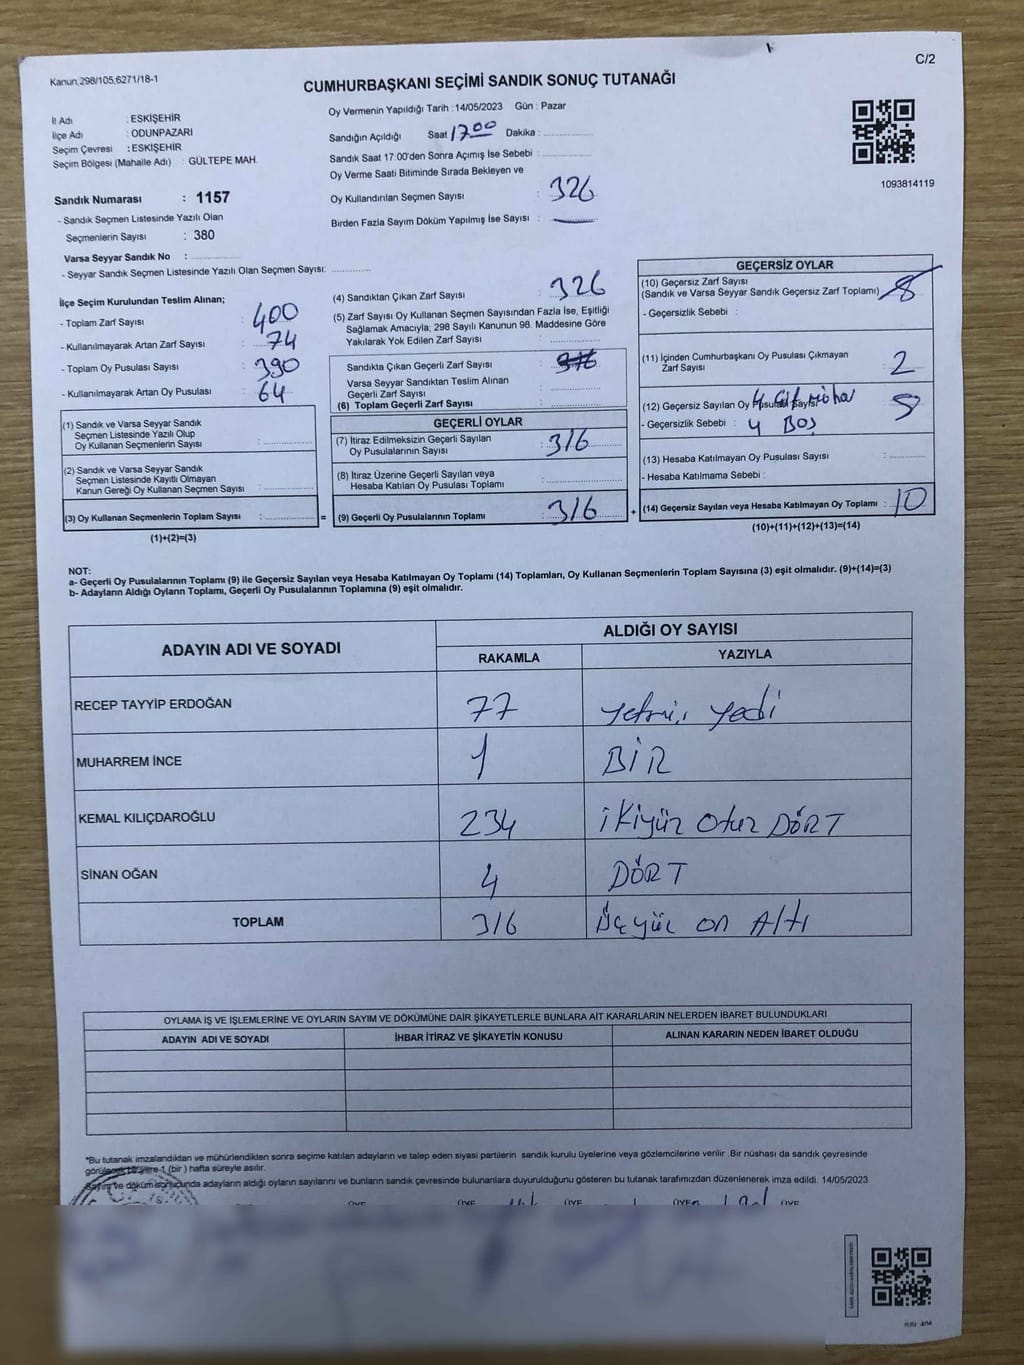 C/2
Kanun:298/105,6271/18-1
CUMHURBAŞKANI SEÇİMİ SANDIK SONUÇ TUTANAĞI
İl Adı : ESKİŞEHİR
İlçe Adı : ODUNPAZARI
Seçim Çevresi : ESKİŞEHİR
Seçim Bölgesi (Mahalle Adı) : GÜLTEPE MAH.
Sandık Numarası : 1157
- Sandık Seçmen Listesinde Yazılı Olan
Seçmenlerin Sayısı : 380
Varsa Seyyar Sandık No :
- Seyyar Sandık Seçmen Listesinde Yazılı Olan Seçmen Sayısı:
Oy Vermenin Yapıldığı Tarih :14/05/2023 Gün : Pazar
Sandığın Açıldığı Saat 17 00 Dakika :
Sandık Saat 17:00'den Sonra Açımış İse Sebebi :
Oy Verme Saati Bitiminde Sırada Bekleyen ve
Oy Kullandırılan Seçmen Sayısı : 326
Birden Fazla Sayım Döküm Yapılmış İse Sayısı :
1093814119
İlçe Seçim Kurulundan Teslim Alınan;
- Toplam Zarf Sayısı : 400
- Kullanılmayarak Artan Zarf Sayısı : 74
- Toplam Oy Pusulası Sayısı : 390
- Kullanılmayarak Artan Oy Pusulası : 64
(1) Sandık ve Varsa Seyyar Sandık
Seçmen Listesinde Yazılı Olup
Oy Kullanan Seçmenlerin Sayısı :
(2) Sandık ve Varsa Seyyar Sandık
Seçmen Listesinde Kayıtlı Olmayan
Kanun Gereği Oy Kullanan Seçmen Sayısı :
(3) Oy Kullanan Seçmenlerin Toplam Sayısı : =
(1)+(2)=(3)
(4) Sandıktan Çıkan Zarf Sayısı : 326
(5) Zarf Sayısı Oy Kullanan Seçmen Sayısından Fazla İse, Eşitliği
Sağlamak Amacıyla; 298 Sayılı Kanunun 98. Maddesine Göre
Yakılarak Yok Edilen Zarf Sayısı :
Sandıkta Çıkan Geçerli Zarf Sayısı : 316
Varsa Seyyar Sandıktan Teslim Alınan
Geçerli Zarf Sayısı :
(6) Toplam Geçerli Zarf Sayısı :
GEÇERLİ OYLAR
(7) İtiraz Edilmeksizin Geçerli Sayılan
Oy Pusulalarının Sayısı : 316
(8) İtiraz Üzerine Geçerli Sayılan veya
Hesaba Katılan Oy Pusulası Toplamı :
(9) Geçerli Oy Pusulalarının Toplamı : 316 +
GEÇERSİZ OYLAR
(10) Geçersiz Zarf Sayısı
(Sandık ve Varsa Seyyar Sandık Geçersiz Zarf Toplamı) 8
- Geçersizlik Sebebi :
(11) İçinden Cumhurbaşkanı Oy Pusulası Çıkmayan
Zarf Sayısı : 2
(12) Geçersiz Sayılan Oy Pusulası Sayısı 8
- Geçersizlik Sebebi : 4 BOŞ
(13) Hesaba Katılmayan Oy Pusulası Sayısı :
- Hesaba Katılmama Sebebi :
(14) Geçersiz Sayılan veya Hesaba Katılmayan Oy Toplamı : 10
(10)+(11)+(12)+(13)=(14)
NOT:
a- Geçerli Oy Pusulalarının Toplamı (9) ile Geçersiz Sayılan veya Hesaba Katılmayan Oy Toplamı (14) Toplamları, Oy Kullanan Seçmenlerin Toplam Sayısına (3) eşit olmalıdır. (9)+(14)=(3)
b- Adayların Aldığı Oyların Toplamı, Geçerli Oy Pusulalarının Toplamına (9) eşit olmalıdır.
ADAYIN ADI VE SOYADI ALDIĞI OY SAYISI
RAKAMLA YAZIYLA
RECEP TAYYİP ERDOĞAN 77 yetmiş yedi
MUHARREM İNCE 1 BİR
KEMAL KILIÇDAROĞLU 234 ikiyüz otuz DÖRT
SİNAN OĞAN 4 DÖRT
TOPLAM 316 Üçyüz on Altı
OYLAMA İŞ VE İŞLEMLERİNE VE OYLARIN SAYIM VE DÖKÜMÜNE DAİR ŞİKAYETLERLE BUNLARA AİT KARARLARIN NELERDEN İBARET BULUNDUKLARI
ADAYIN ADI VE SOYADI İHBAR İTİRAZ VE ŞİKAYETİN KONUSU ALINAN KARARIN NEDEN İBARET OLDUĞU
*Bu tutanak imzalandıktan ve mühürlendikten sonra seçime katılan adayların ve talep eden siyasi partilerin sandık kurulu üyelerine veya gözlemcilerine verilir .Bir nüshası da sandık çevresinde
görülecek bir yere 1 (bir ) hafta süreyle asılır.
Sayım ve döküm sonucunda adayların aldığı oyların sayılarını ve bunların sandık çevresinde bulunanlara duyurulduğunu gösteren bu tutanak tarafımızdan düzenlenerek imza edildi. 14/05/2023
ÜYE ÜYE ÜYE ÜYE ÜYE